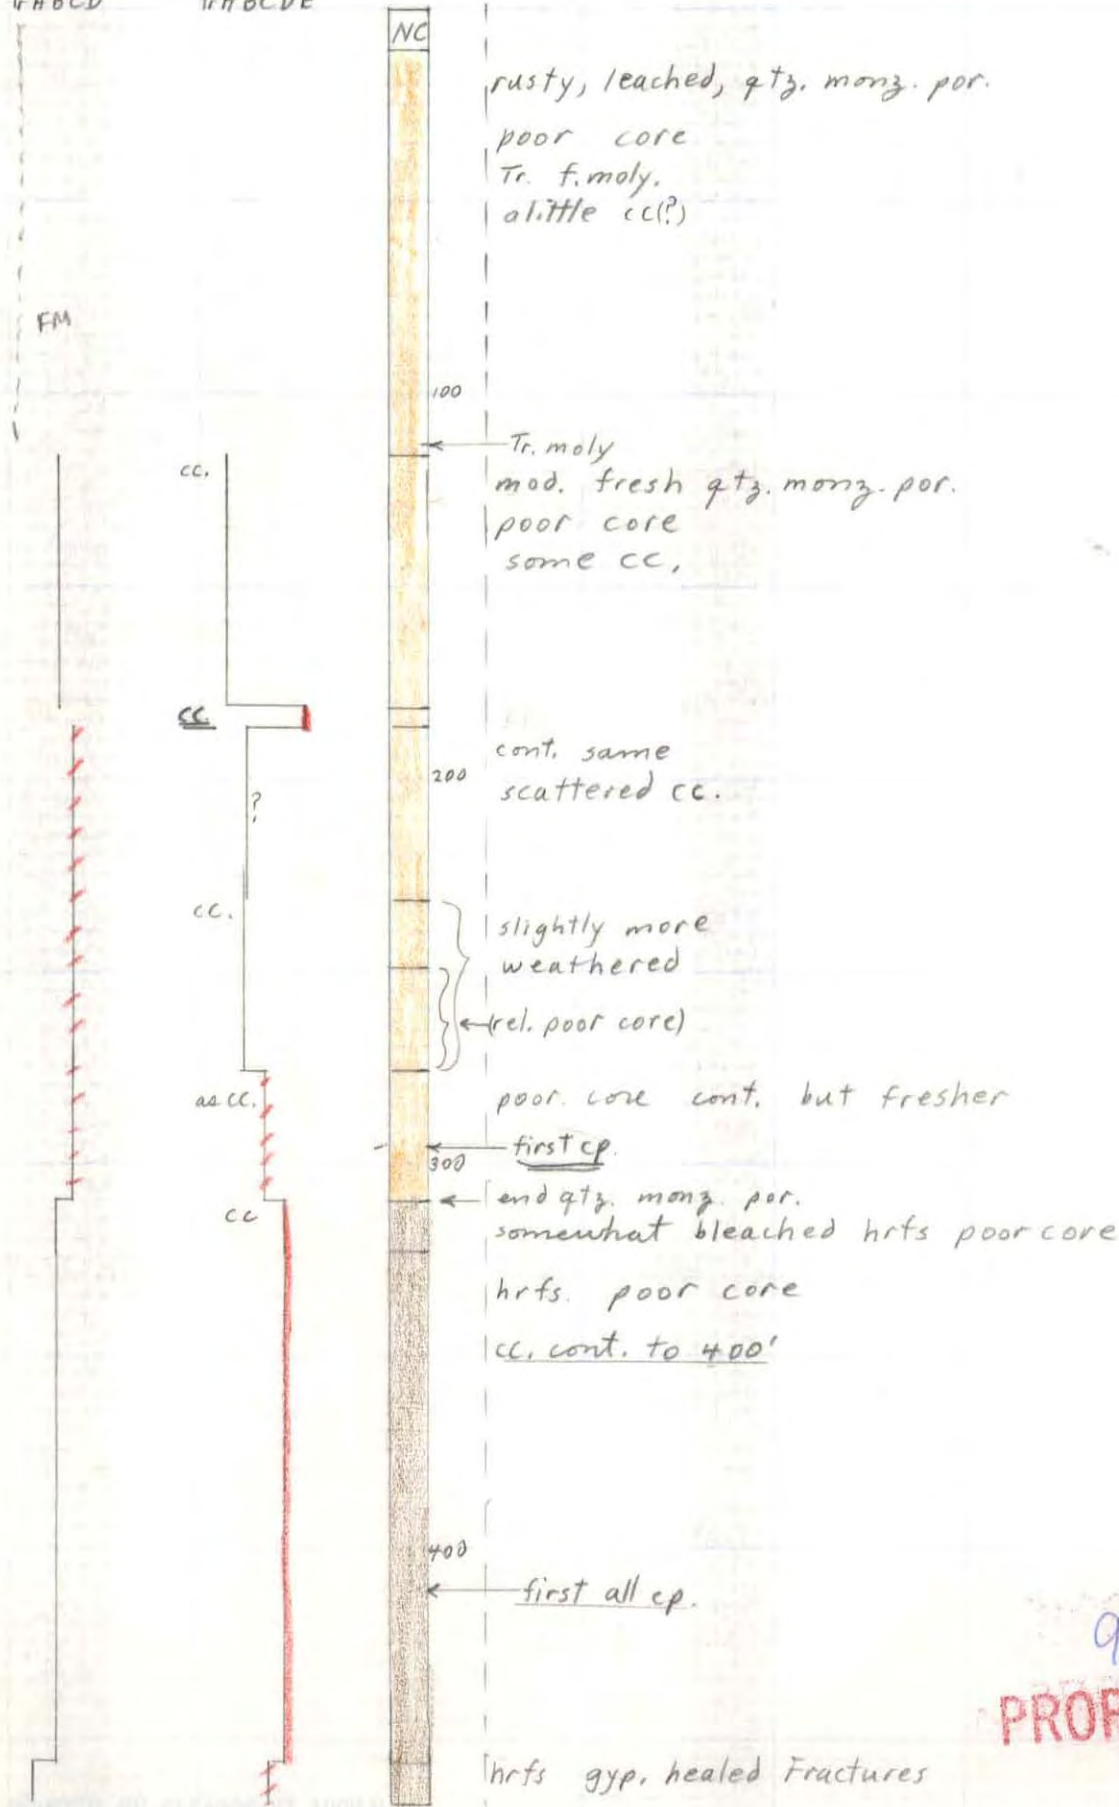 TrABCD TrABCDE
NC
rusty, leached, qtz. monz. por.
poor core
Tr. f. moly.
alittle cc(?)
FM
100
Tr. moly
cc.
mod. fresh qtz. monz. por.
poor core
some cc.
cc.
cont. same
200
scattered cc.
?
cc.
slightly more
weathered
(rel. poor core)
as cc.
poor. core cont. but fresher
first cp.
300
end qtz. monz. por.
cc
somewhat bleached hrfs poor core
hrfs. poor core
cc. cont. to 400'
400
first all cp.
9
PROP
hrfs gyp. healed Fractures